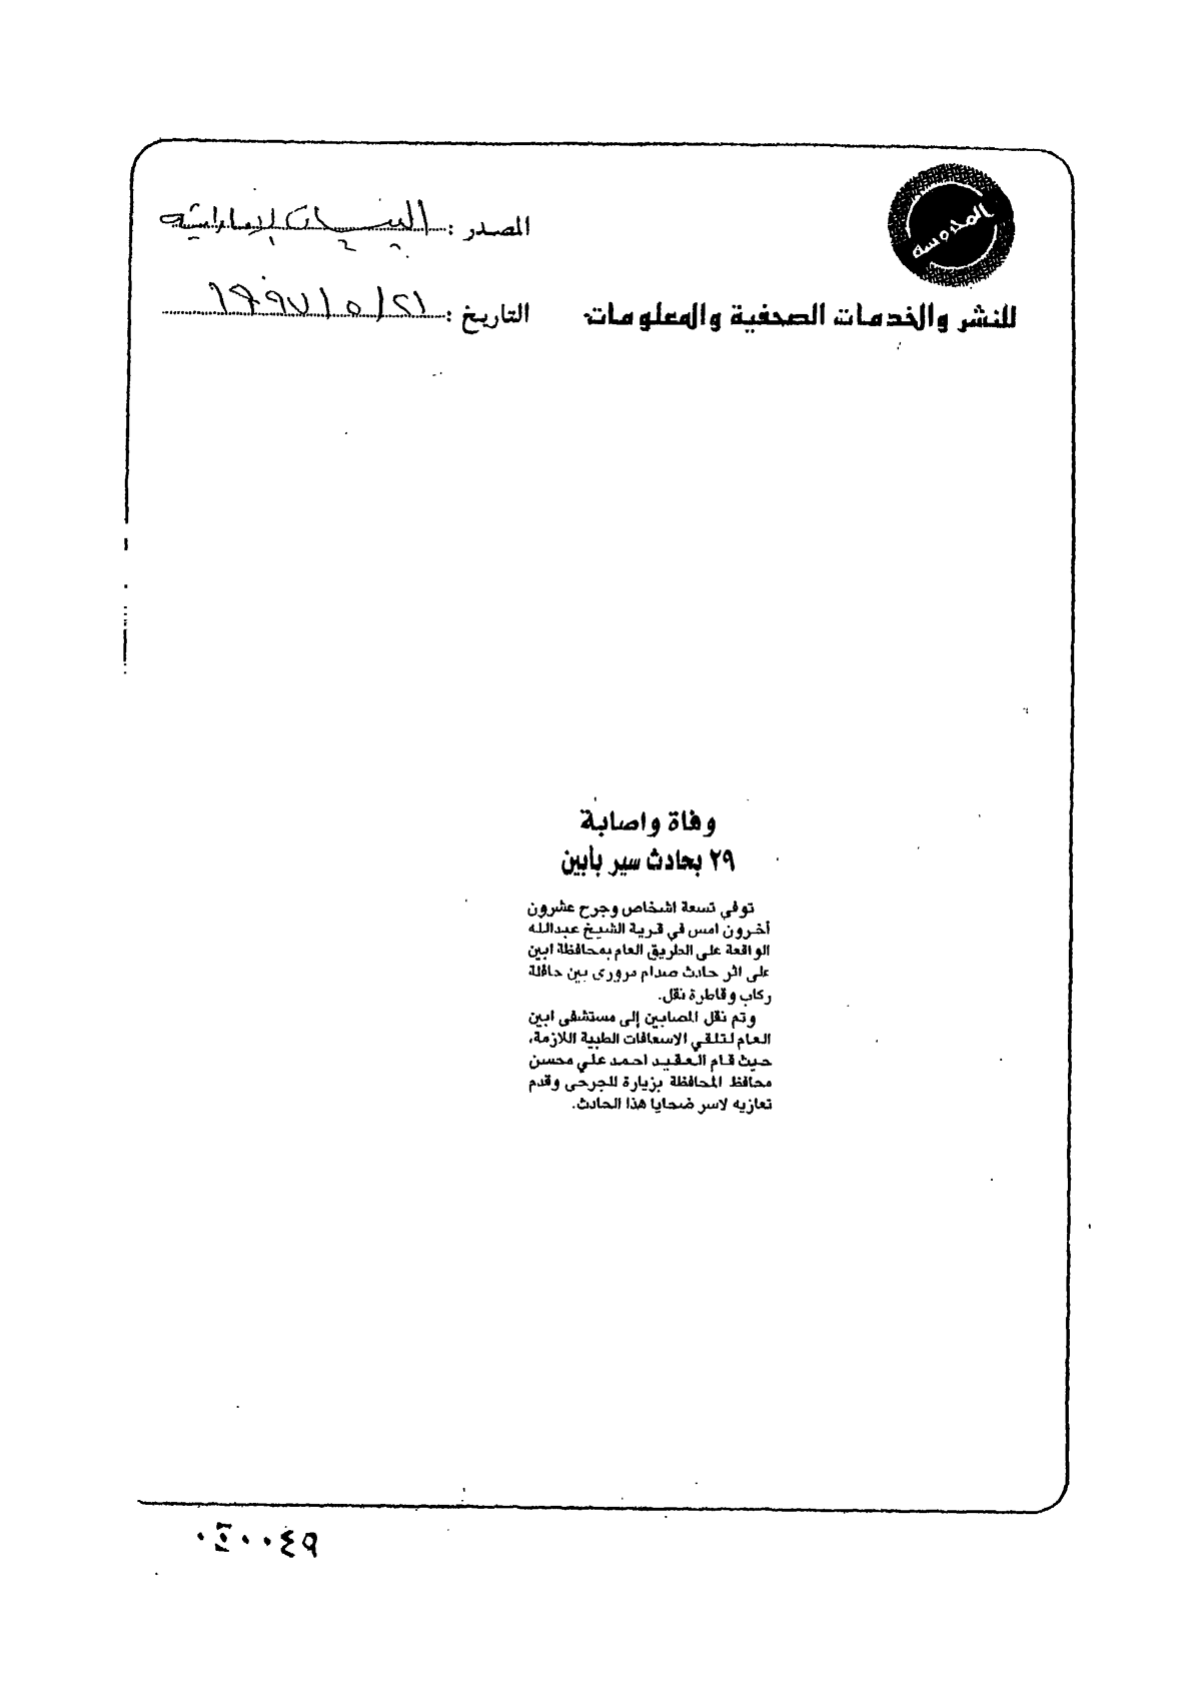 المحروسة
المصدر : البيان الإماراتية
للنشر والخدمات الصحفية والمعلومات
التاريخ : ٢١ / ٥ / ١٩٩٧
وفاة واصابة
٢٩ بحادث سير بأبين
توفي تسعة اشخاص وجرح عشرون
أخرون امس في قرية الشيخ عبدالله
الواقعة على الطريق العام بمحافظة ابين
على اثر حادث صدام مروري بين حافلة
ركاب وقاطرة نقل.
وتم نقل المصابين إلى مستشفى ابين
العام لتلقي الاسعافات الطبية اللازمة،
حيث قام العقيد احمد علي محسن
محافظ المحافظة بزيارة للجرحى وقدم
تعازيه لاسر ضحايا هذا الحادث.